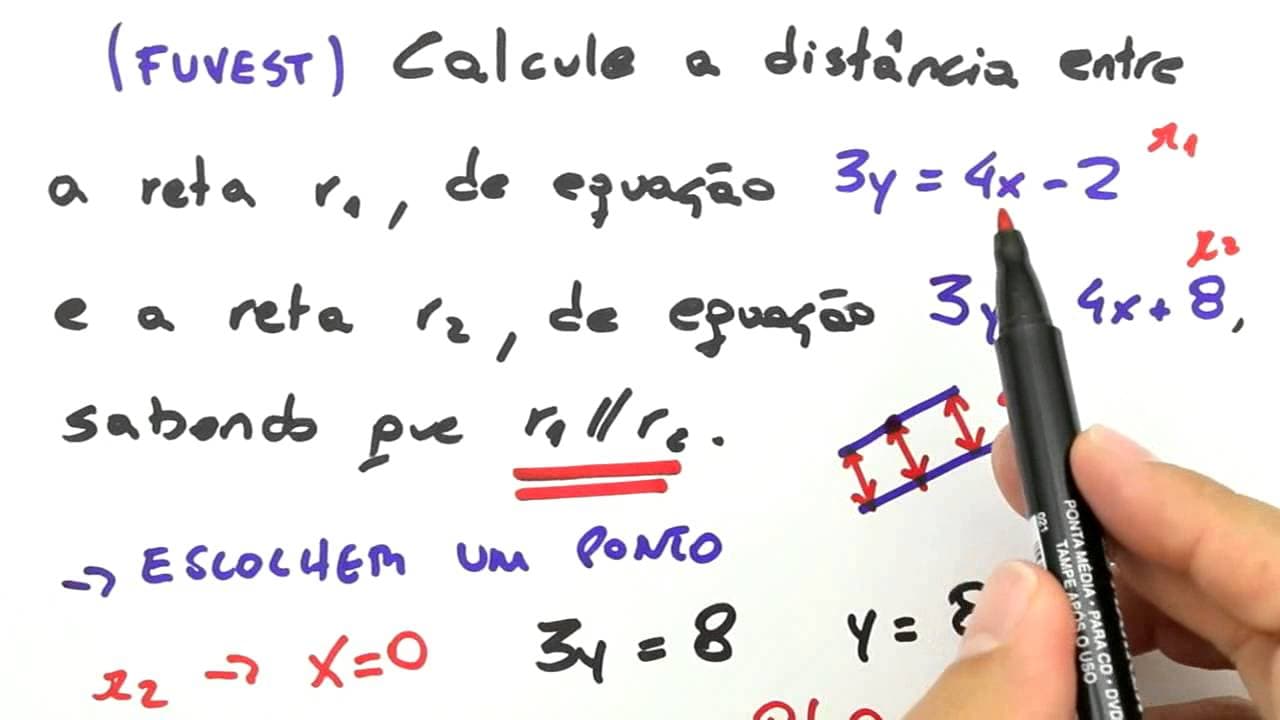 (FUVEST) Calcule a distância entre
a reta r₁, de equação 3y = 4x - 2 r₁
e a reta r₂, de equação 3y 4x + 8, r₂
sabendo que r₁ // r₂.
→ ESCOLHEM UM PONTO
r₂ → x = 0 3y = 8 y = 8
021
PONTA MÉDIA · PARA CD · DVD
TAMPE APÓS O USO